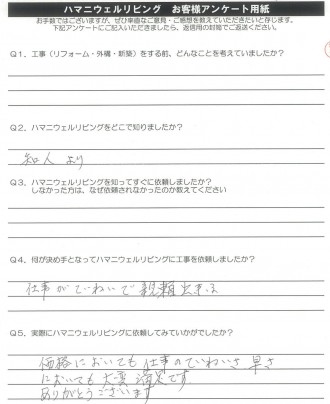 ハマニウェルリビング　お客様アンケート用紙
お手数ではございますが、ぜひ率直なご意見・ご感想を教えていただきたいと存じます。
下記アンケートにご記入いただきましたら、返信用の封筒でご返送ください。
Q1．工事（リフォーム・外構・新築）をする前、どんなことを考えていましたか？
Q2．ハマニウェルリビングをどこで知りましたか？
知人より
Q3．ハマニウェルリビングを知ってすぐに依頼しましたか？
しなかった方は、なぜ依頼されなかったのか教えてください
Q4．何が決め手となってハマニウェルリビングに工事を依頼しましたか？
仕事がていねいで親頼出きる
Q5．実際にハマニウェルリビングに依頼してみていかがでしたか？
価格においても仕事のていねいさ 早さ
においても大変満足です
ありがとうございます